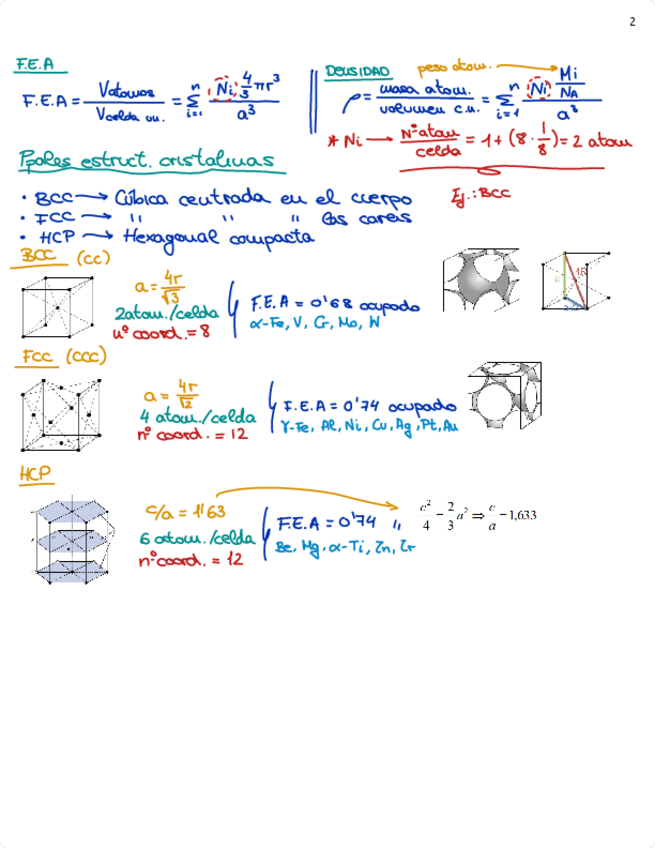 2
F.E.A
F.E.A = Vatomos / Vcelda un. = Σ i=1 n Ni 4/3 πr³ / a³
DENSIDAD peso atom.
ρ = masa atom. / volumen c.u. = Σ i=1 n Ni Mi/NA / a³
* Ni → Nº atom / celda = 1 + (8 · 1/8) = 2 atom
Ppales estruct. cristalinas
Ej.: BCC
• BCC → Cúbica centrada en el cuerpo
• FCC → " " " las caras
• HCP → Hexagonal compacta
BCC (CC)
a = 4r/√3
2 atom./celda
nº coord. = 8
F.E.A = 0'68 ocupado
α-Fe, V, Cr, Mo, W
FCC (CCC)
a = 4r/√2
4 atom./celda
nº coord. = 12
F.E.A = 0'74 ocupado
γ-Fe, Al, Ni, Cu, Ag, Pt, Au
HCP
c/a = 1'63
6 atom./celda
nº coord. = 12
F.E.A = 0'74 "
Be, Mg, α-Ti, Zn, Zr
c²/4 = 2/3 a² ⇒ c/a = 1,633